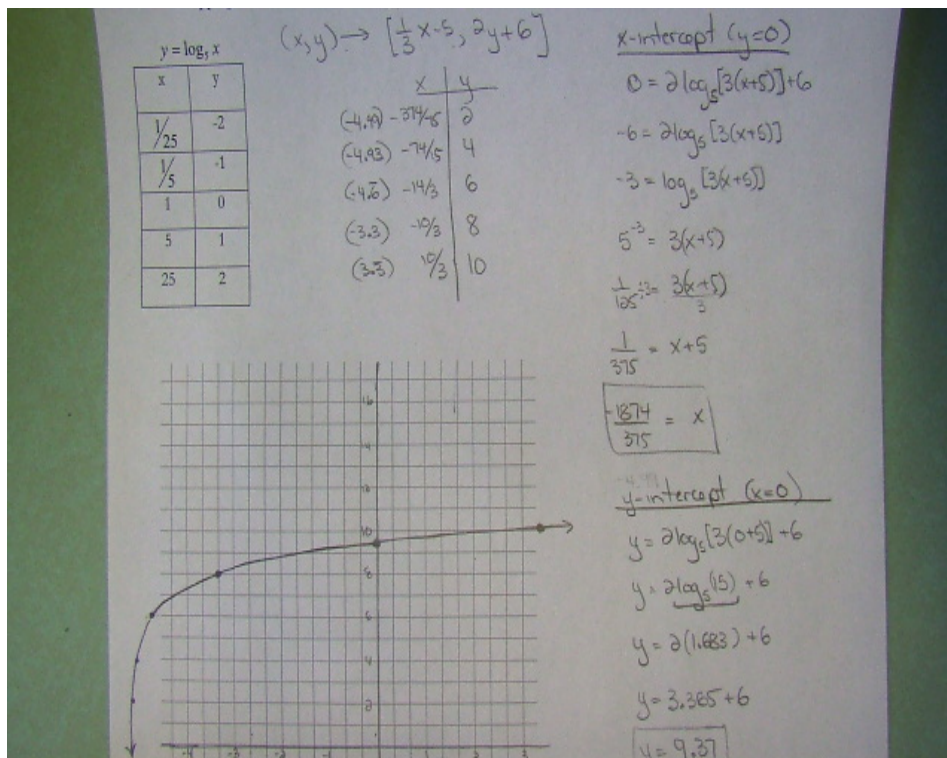 (x,y) → [1/3 x-5, 2y+6]
y = log₅ x
x y
1/25 -2
1/5 -1
1 0
5 1
25 2
x y
(-4.99) -374/75 2
(-4.93) -74/15 4
(-4.6̅) -14/3 6
(-3.3) -10/3 8
(3.3̅) 10/3 10
x-intercept (y=0)
0 = 2log₅[3(x+5)]+6
-6 = 2log₅[3(x+5)]
-3 = log₅[3(x+5)]
5⁻³ = 3(x+5)
1/125 ÷3 = 3(x+5)/3
1/375 = x+5
-1874/375 = x
y-intercept (x=0)
y = 2log₅[3(0+5)]+6
y = 2log₅(15) +6
y = 2(1.683)+6
y = 3.365+6
y = 9.37
16
14
12
10
8
6
4
2
-4 -3 -2 -1 1 2 3